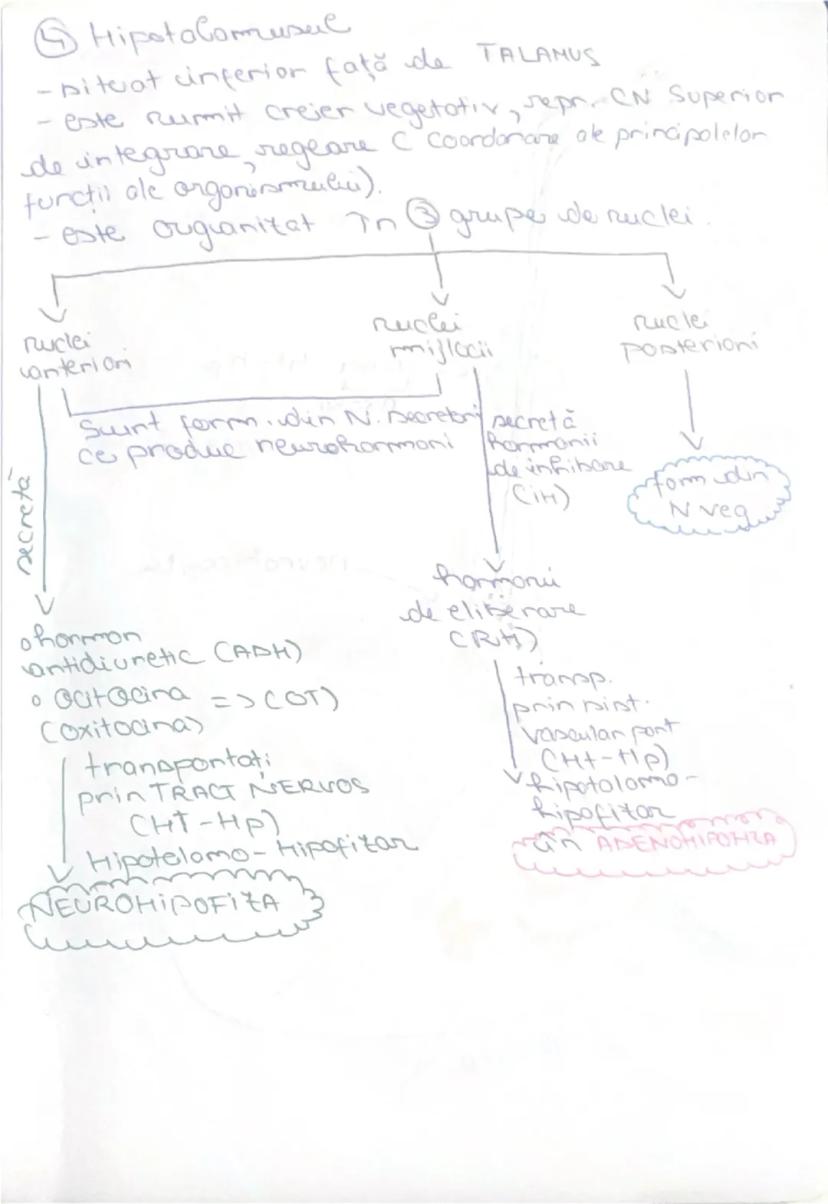 ④ Hipotalamusul
- situat inferior față de TALAMUS
- este numit creier vegetativ, repr. CN Superior
de integrare, reglare C Coordonare ale principalelor
funcții ale organismului).
- este organizat în ③ grupe de nuclei.
nuclei
anteriori
nuclei
mijlocii
nuclei
posteriori
Sunt form. din N. secretori
ce produc neurohormoni
secretă
hormonii
de inhibare
(iH)
form din
N veg
secretă
hormonii
de eliberare
(RH)
o hormon
antidiuretic (ADH)
o ocitocina => (OT)
(oxitocina)
transp.
prin sist.
vascular port
(HT-Hp)
hipotalamo-
hipofizar
în ADENOHIPOFIZA
transportați
prin TRACT NERVOS
(HT-Hp)
Hipotalamo-Hipofizar
NEUROHIPOFIZA